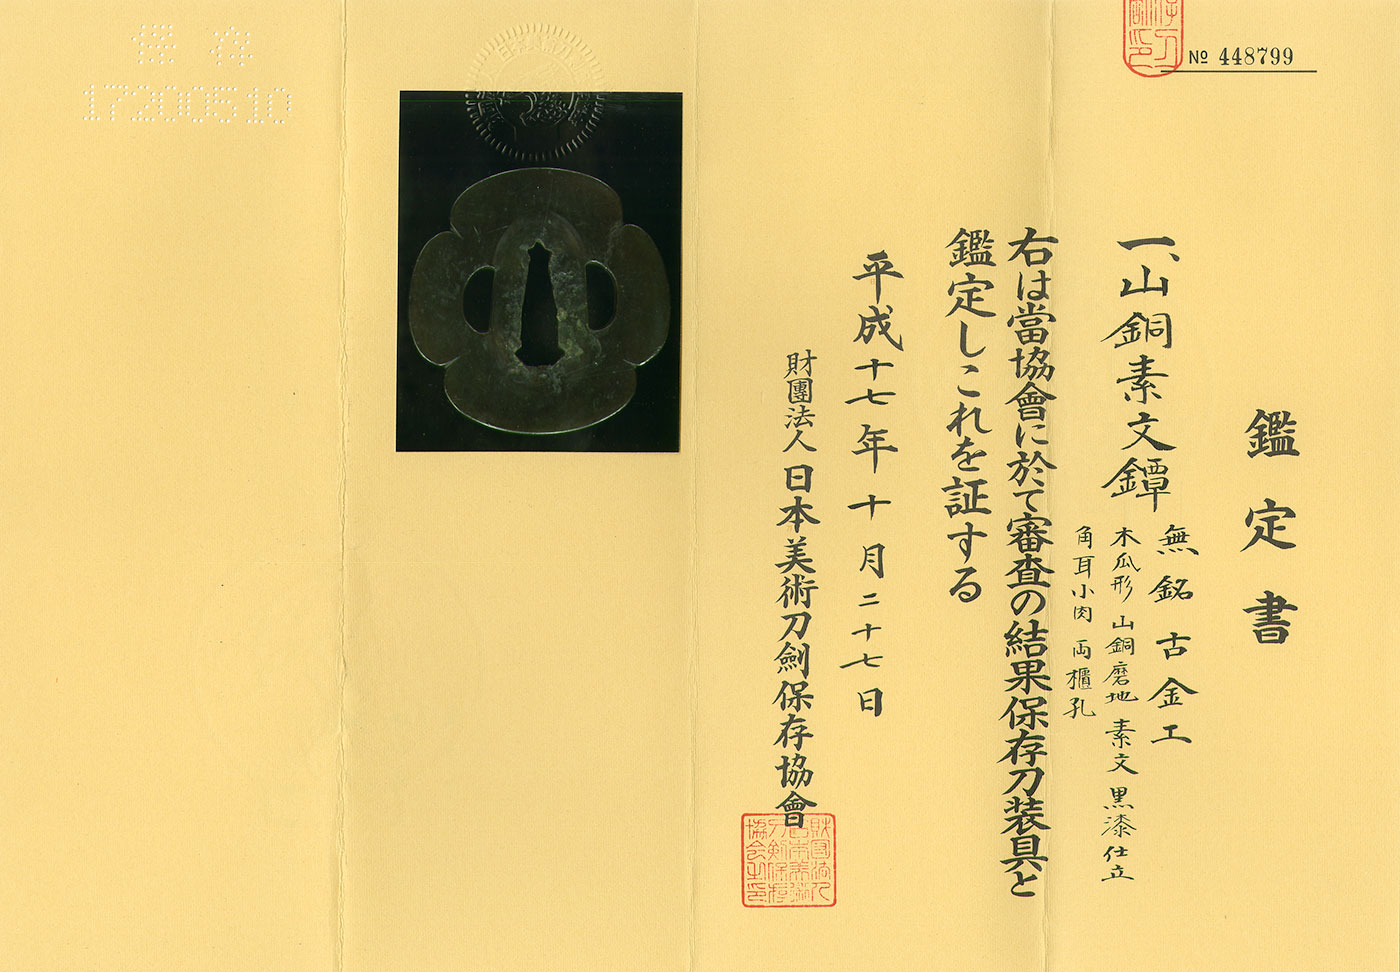 № 448799
鑑定書
一、山銅素文鐔
無銘 古金工
木瓜形 山銅磨地 素文 黒漆仕立
角耳小肉 両櫃孔
右は當協會に於て審査の結果保存刀装具と
鑑定しこれを証する
平成十七年十月二十七日
財團法人日本美術刀劍保存協會
保存
17200510